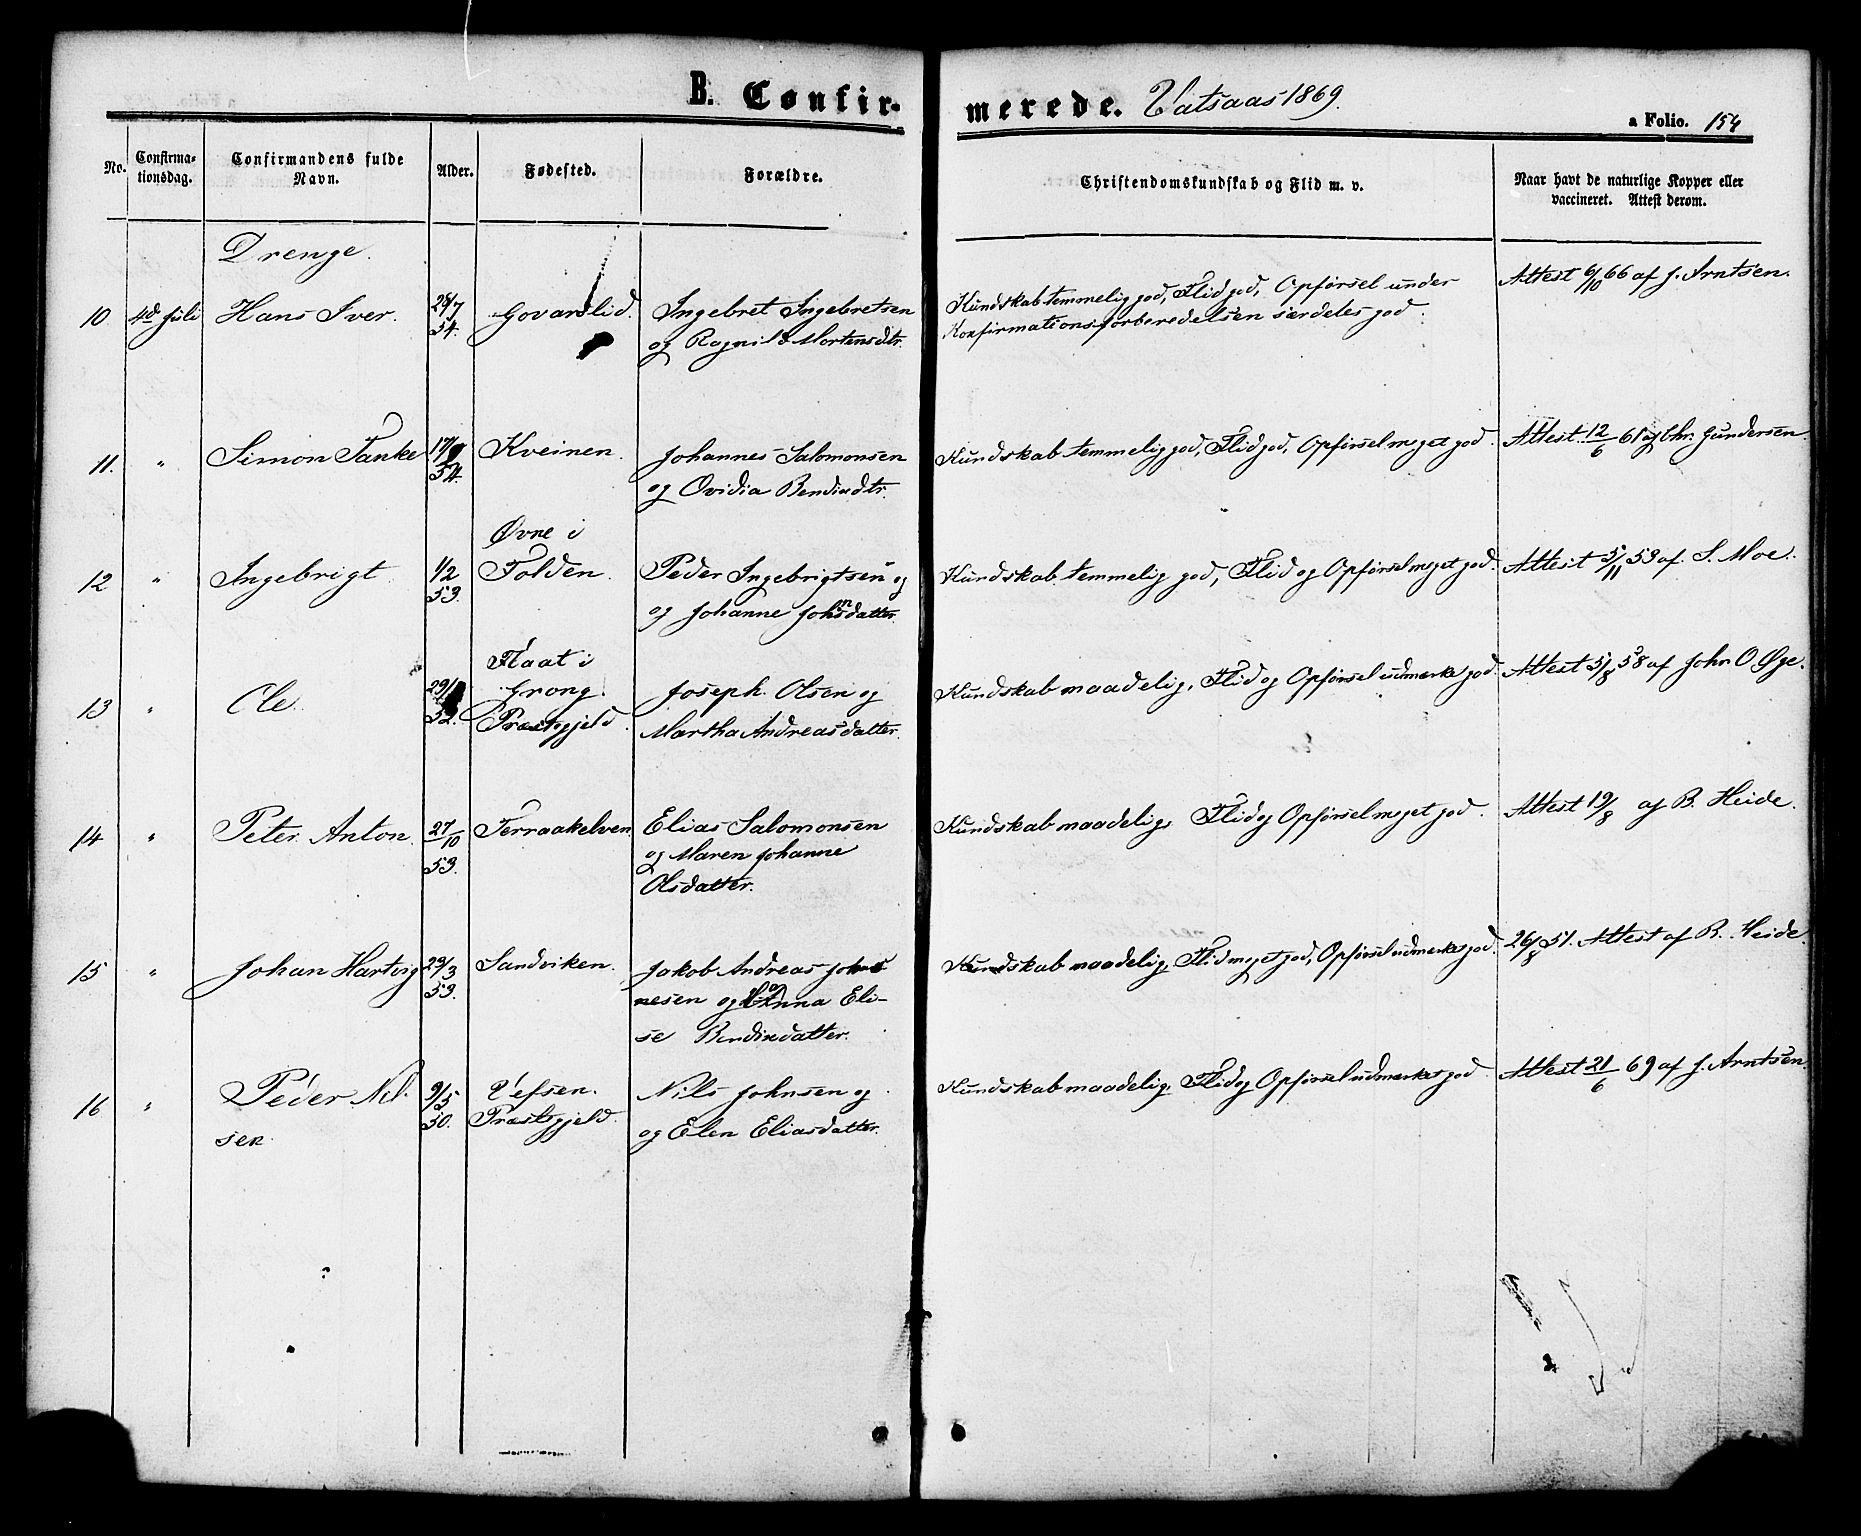 B. Confirmerede. Vatsaas 1869.
a Folio. 154
No. Confirmationsdag. Confirmandens fulde Navn. Alder. Fødested. Forældre. Christendomskundskab og Flid m. v. Naar havt de naturlige Kopper eller vaccineret. Attest derom.
Drenge.
10 4de Juli Hans Iver. 28/7 54. Govarslid. Ingebret Ingebretsen
og Ragnild Mortensdtr.
Kundskab temmelig god, Flid god, Opførsel under
Konfirmationsforberedelsen særdeles god.
Attest 6/10 66 af J. Arntsen.
11. " Simon Tanke 17/9 54. Kveinen. Johannes Salomonsen
og Ovidia Bendixdtr.
Kundskab temmelig god, Flid god, Opførsel meget god. Attest 12/6 61 af Chr. Gundersen.
12 " Ingebrigt 1/2 53. Øvre i
Folden. Peder Ingebrigtsen og
og Johanne Johnsdatter.
Kundskab temmelig god, Flid og Opførsel meget god. Attest 5/11 53 af S. Moe.
13 " Ole. 29/ 52. Flaat i
Grong
Præstegjeld. Joseph Olsen og
Martha Andreasdatter.
Kundskab maadelig, Flid og Opførsel udmerket god. Attest 5/8 58 af John O Øye.
14 " Peter Anton. 27/10 53. Terraakelven Elias Salomonsen
og Maren Johanne
Olsdatter.
Kundskab maadelig, Flid og Opførsel meget god. Attest 19/8 af B. Heide.
15 " Johan Hartvig 29/3 53. Sandviken. Jakob Andreas Johan
nesen og Hanna Eli-
se Bendixdatter.
Kundskab maadelig, Flid meget god, Opførsel udmerket god. 26/8 51. Attest af B. Heide.
16 " Peder Nil-
sen 9/5 50. Vefsen.
Præstegjeld. Nils Johnsen og
og Elen Eliasdatter.
Kundskab maadelig, Flid og Opførsel udmerket god. Attest 21/6 69 af J. Arntsen.